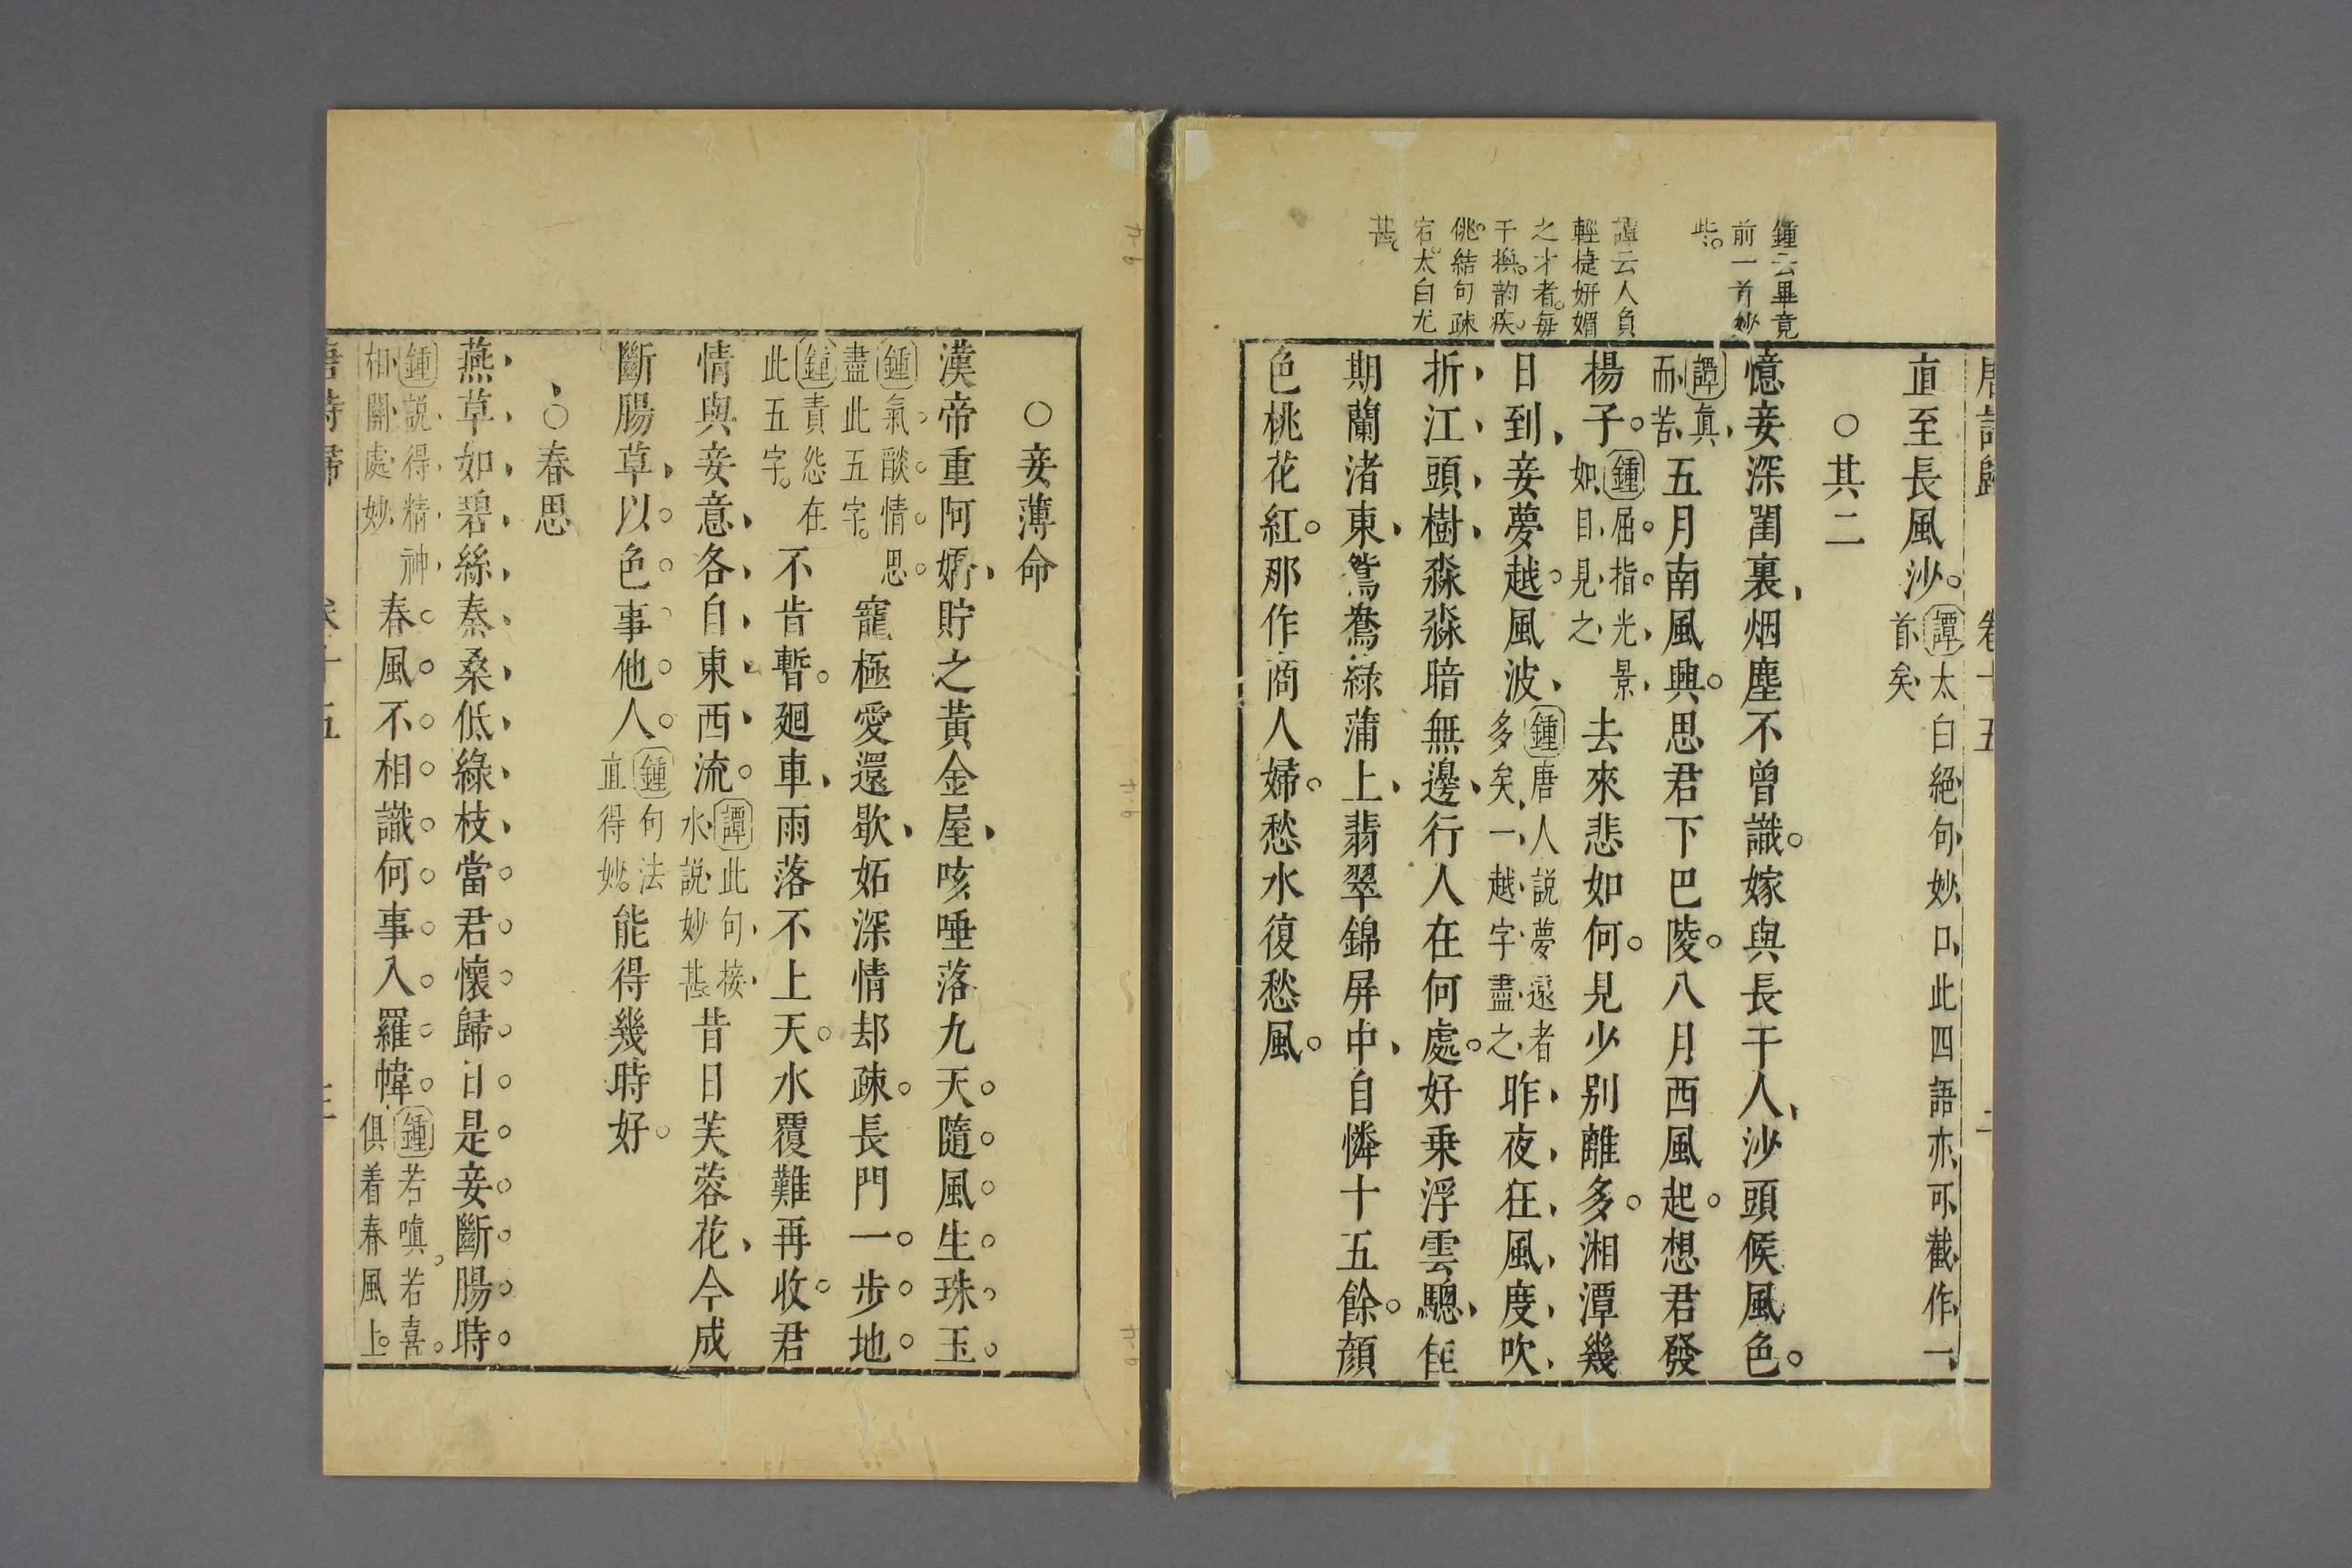 唐詩歸　卷十五　二
鍾云畢竟
前一首妙
些。
譚云人負
輕㨗妍媚
之才者。每
于換韵疾。
佻。結句疎
宕。太白尤
甚。
直至長風沙。譚太白絕句妙口此四語亦可截作一
首矣
○其二
憶妾深閨裏、烟塵不曾識。嫁與長干人、沙頭候風色。
譚真
而苦
五月南風興。思君下巴陵。八月西風起。想君發
楊子。鍾屈指光景
如目見之
去來悲如何。見少别離多。湘潭幾
日到、妾夢越。風波、鍾唐人説夢遠者
多矣、一越字盡之
昨夜狂風度、吹
折江頭樹、淼淼暗無邊、行人在何處。好乗浮雲驄、佳
期蘭渚東、鴛鴦綠蒲上、翡翠錦屏中、自憐十五餘。顔
色桃花紅。那作商人婦。愁水復愁風。
○妾薄命
漢帝重阿嬌、貯之黃金屋、咳唾落九天。隨風生珠玉。
鍾氣酸情思
盡此五字。
寵極愛還歇、妬深情却疎。長門一步地。
鍾責怨在
此五字。
不肯暫。廻車、雨落不上天。水覆難再收。君
情與妾意、各自東西流。譚此句接
水説妙甚
昔日芙蓉花、今成
斷腸草、以色事他人。鍾句法
直得妙。
能得幾時好。
○春思
燕草如碧絲、秦桑低綠枝、當君懷歸日。是妾斷腸時。
鍾説得精神
相關處妙
春風不相識。何事入羅幃。鍾若嗔。若喜。
俱着春風上。
唐詩歸　卷十五　三